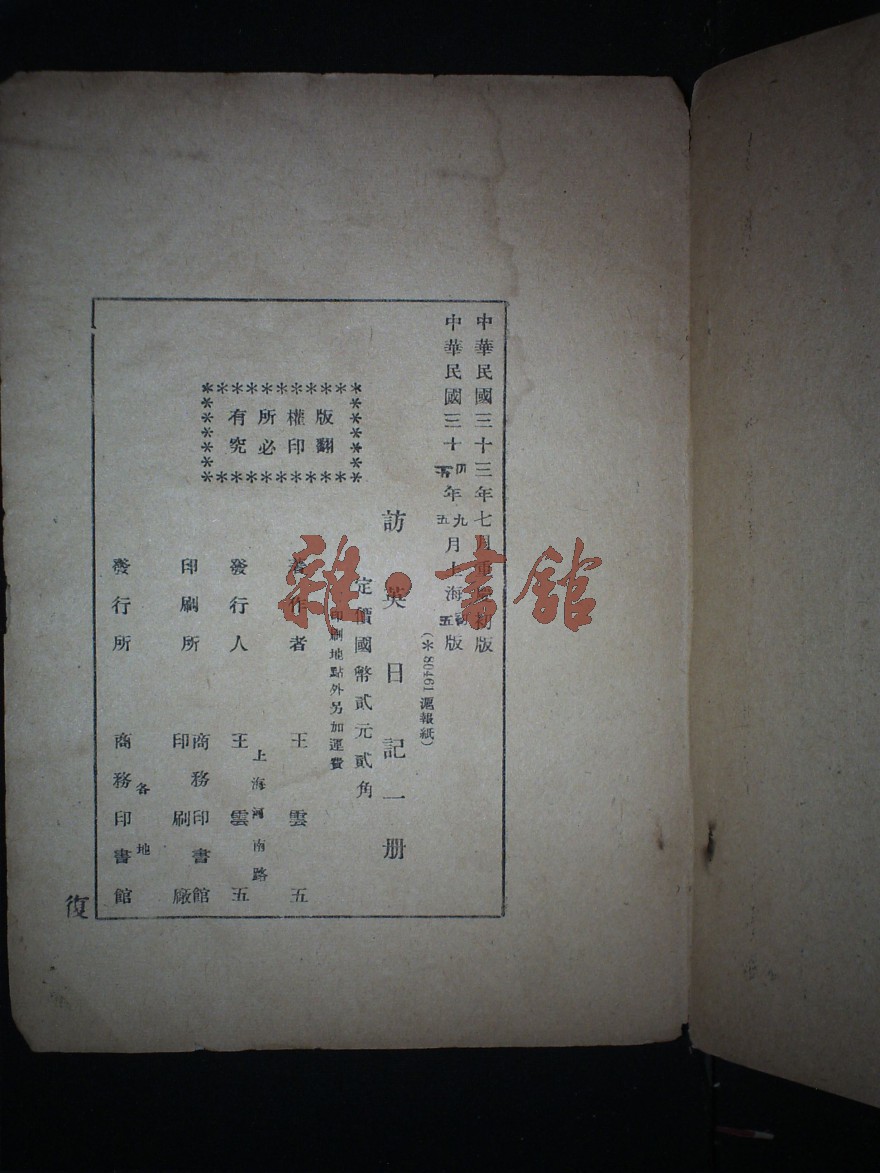 中華民國三十三年七月重慶初版
中華民國三十四年九月上海初版
五 五
(*80461滬報紙)
訪英日記一册
定價國幣貳元貳角
印刷地點外另加運費
版權所有
翻印必究
著作者 王雲五
發行人 上海河南路 王雲五
印刷所 商務印書館印刷廠
發行所 各地 商務印書館
復
雜·書館